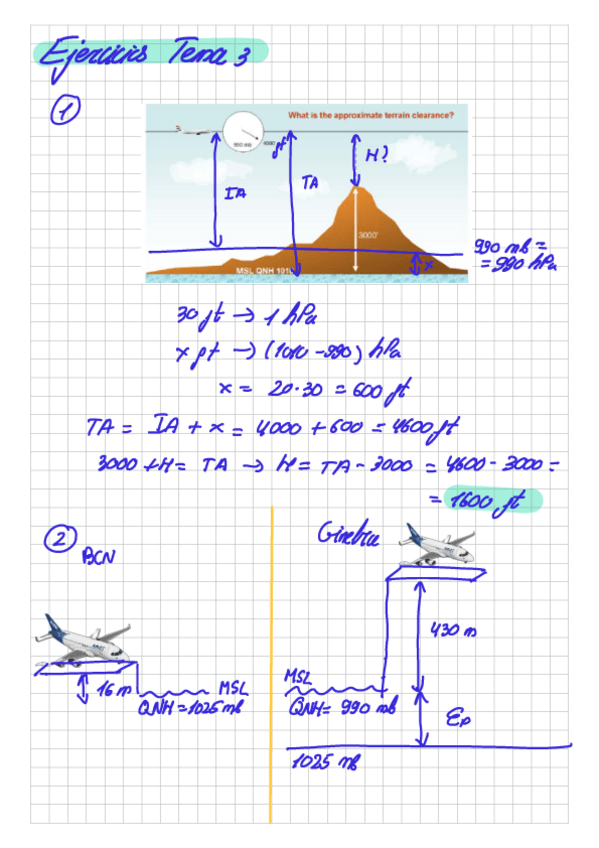 Ejercicis Tema 3
1
What is the approximate terrain clearance?
990 mb
4000 ft
H?
IA
TA
3000'
990 mb =
= 990 hPa
x
MSL QNH 1010
30 ft → 1 hPa
x ft → (1010 - 990) hPa
x = 20·30 = 600 ft
TA = IA + x = 4000 + 600 = 4600 ft
3000 + H = TA → H = TA - 3000 = 4600 - 3000 =
= 1600 ft
2
BCN
Ginebra
430 m
16 m
MSL
QNH = 1025 mb
MSL
QNH = 990 mb
Ep
1025 mb